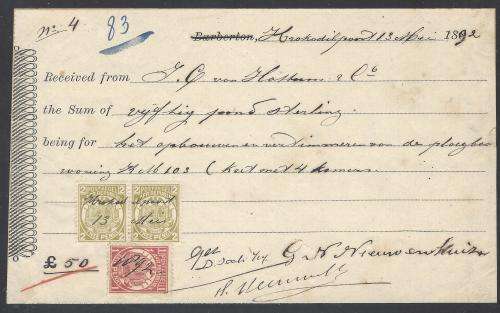 No 4 83
Barberton, Krokodilpoort 13 Mei 1892
Received from J. C. van Hattum & Co
the Sum of vijftig pond sterling
being for het opbouwen en vertimmeren van de ploegbaas
woning Kilo 103 (keet met 4 kamers
Krokodilpoort
13 Mei
£ 50
get G N Nieuwenhuize